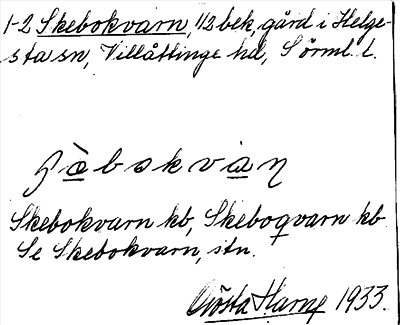 1-2 Skebokvarn, 1/3 bek, gård i Helge-
sta sn, Villåttinge hd, Sörml. l.
Skebokvarn kb, Skeboqvarn kb
Se Skebokvarn, stn.
Gösta Harng 1933.